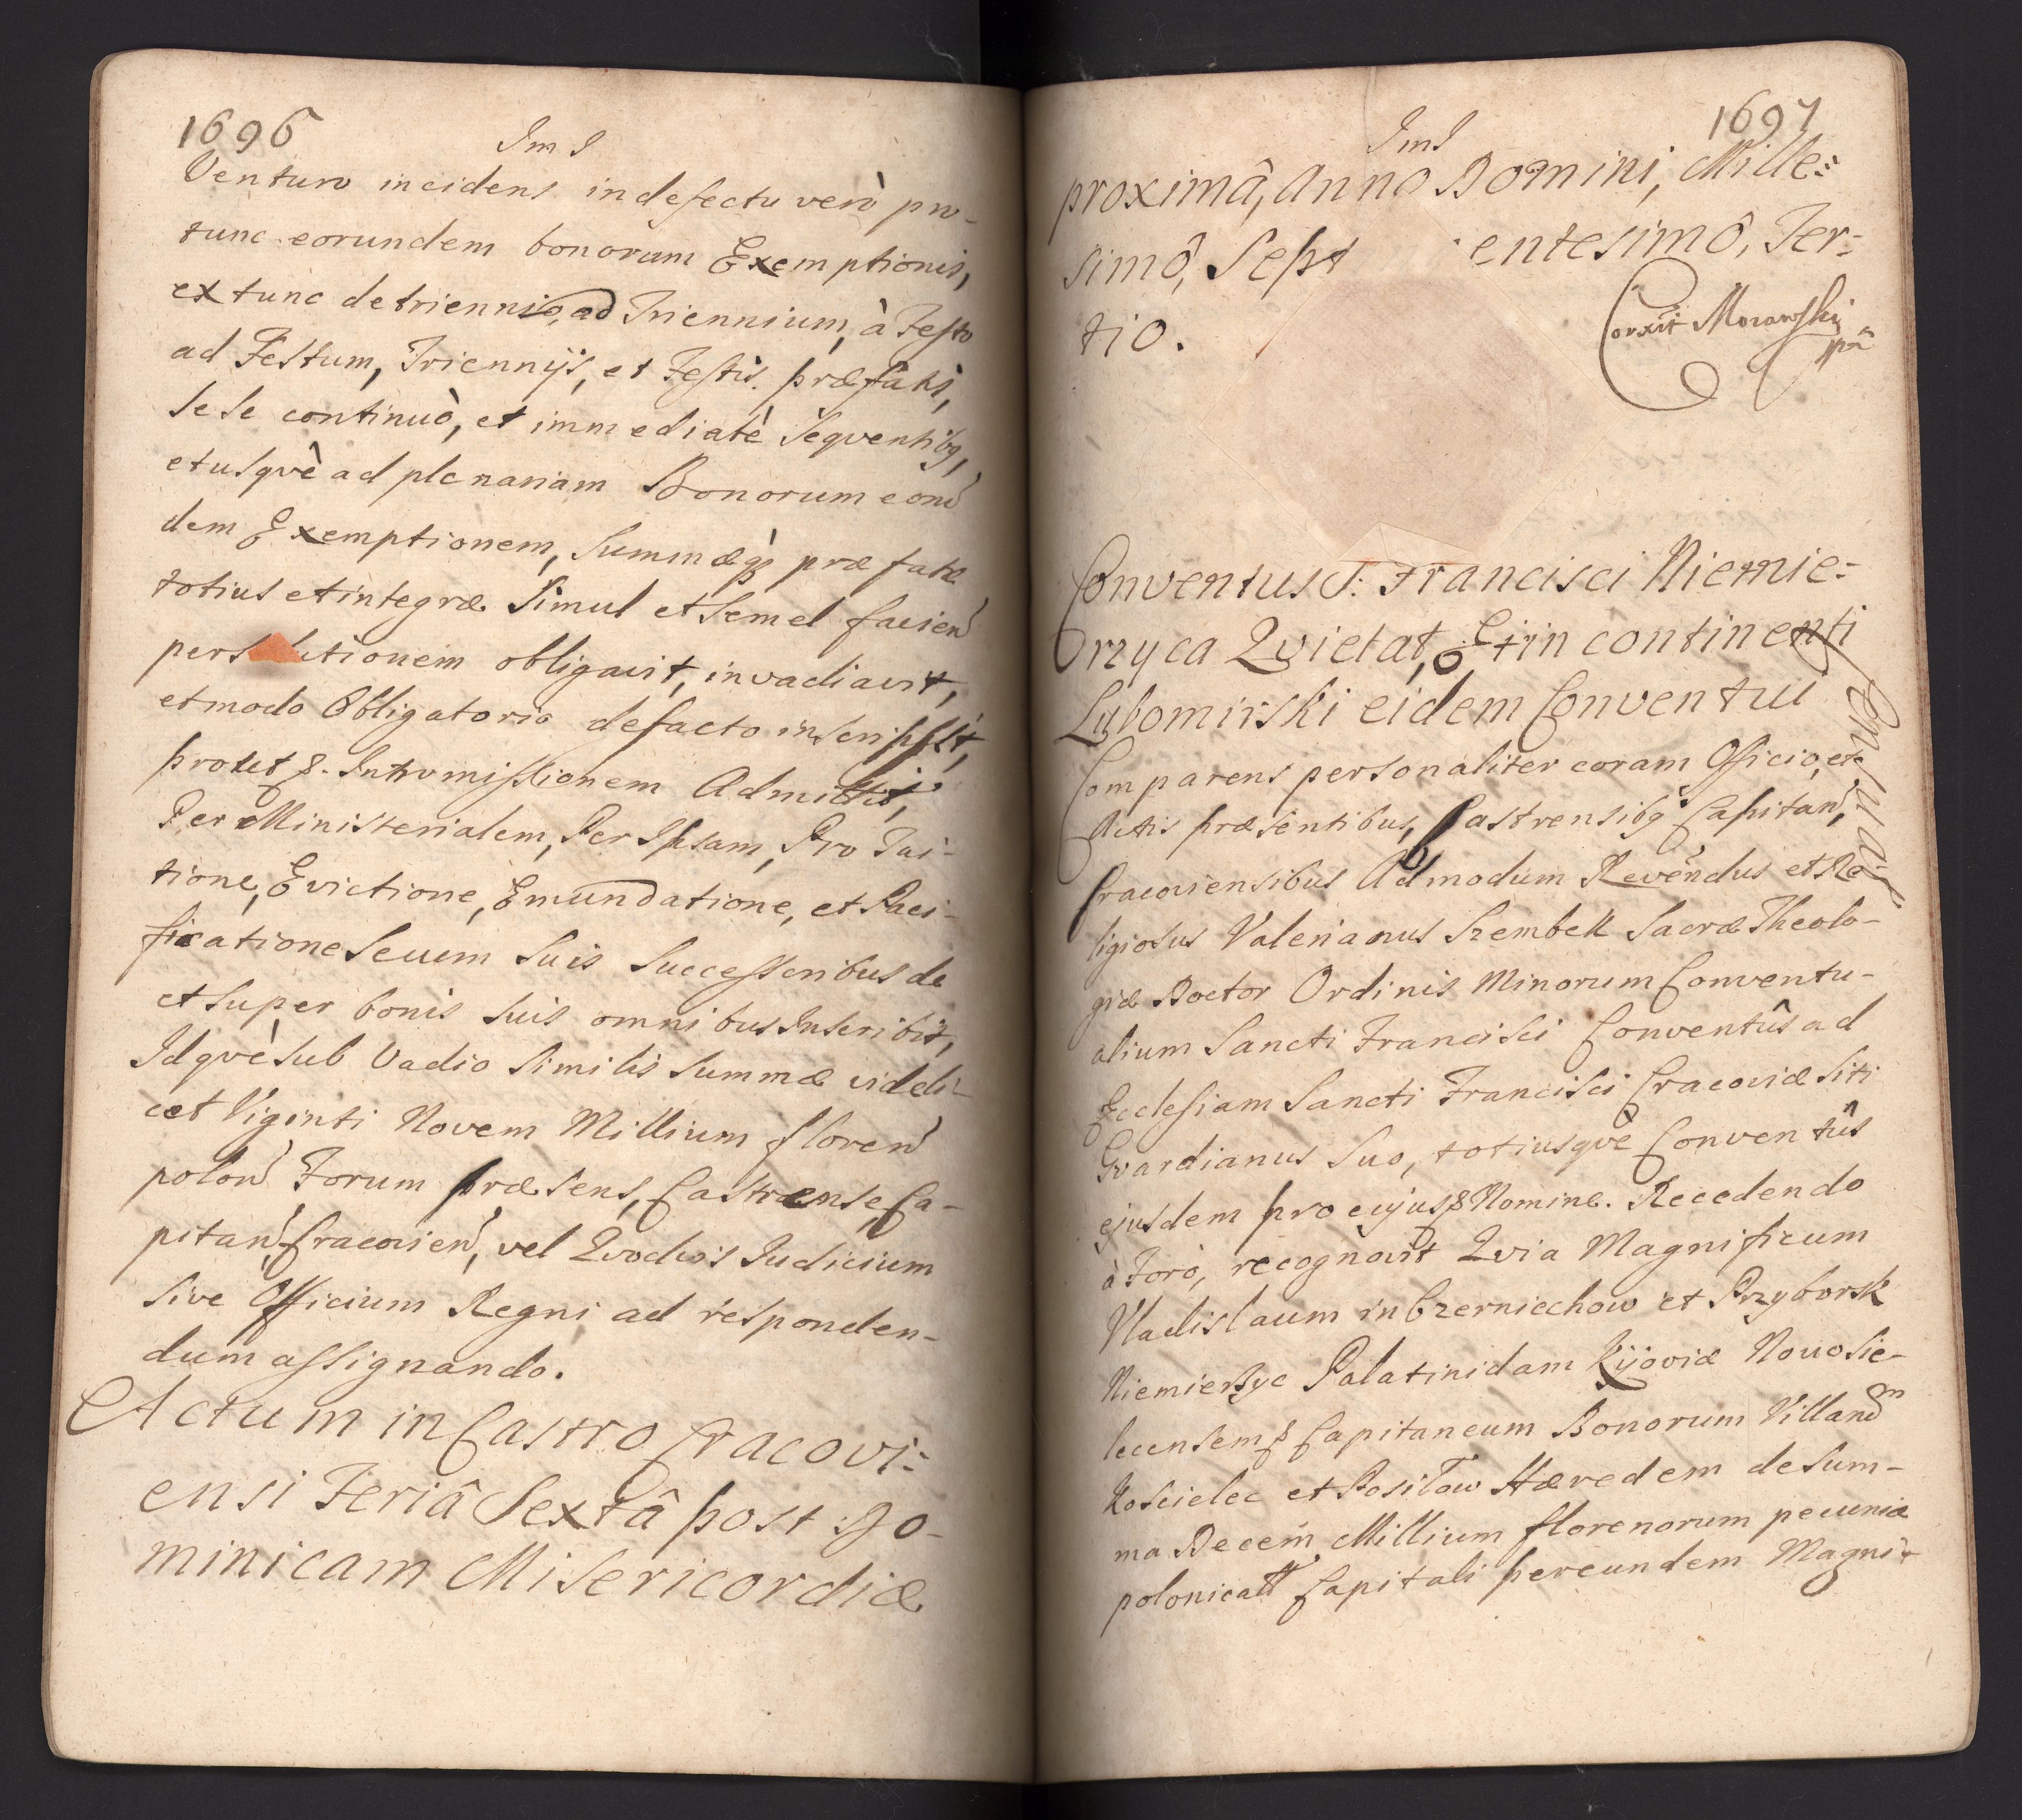 1696
Im I
Venturo incidens in defectu verò pro-
tunc eorundem bonorum Exemptionis,
ex tunc de triennio, ad Triennium, à Festo
ad Festum, Triennijs, et Festis præfatis,
sese continuò, et immediatè sequentibg,
etusqvè ad plenariam Bonorum eorun
dem Exemptionem, Summæqȝ præfatæ
totius et integræ Simul et Semel facien
pers utionem obligavit, invadiavit,
et modo Obligatorio defacto inscripsit,
prout &. Intromissionem Admittit,
Per Ministerialem, Per Ipsam, Pro Tui-
tione, Evictione, Emundatione, et Paci-
ficatione Se cum Suis Successoribus de
et Super bonis Suis omnibus Inscribit,
Idqvè Sub Vadio Similis Summæ videli-
cet Viginti Novem Millium floren
polon Forum præsens, Castrense, Ca-
pitan, Cracovien, vel Qvodvis Iudicium
Sive Officium Regni ad responden-
dum assignando.
Actum in Castro Cracovi:
ensi Feriâ Sextâ post Do-
minicam Misericordiæ
1697
ImI
proximâ, Anno Domini, Mille:
simô, Sept entesimô, Ter:
tio.
Correxit Morawski
mp
Conventus S: Francisci Niemie:
rzyca Qvietat, Et in continenti
Lubomirski eidem Conventui
Inscribit
Comparens personaliter coram Officio, et
Actis præsentibus, Castrensibg Capitan,
Cracoviensibus Admodum Revendus et Re
ligiosus Valerianus Szembek Sacræ Theolo-
giæ Doctor Ordinis Minorum Conventu-
alium Sancti Francisci Conventûs ad
Ecclesiam Sancti Francisci Cracoviæ Siti
Gvardianus Suo, totiusqvè Conventûs
ejusdem pro cujus & Nomine. Recedendo
à Foro, recognovit Qvia Magnificum
Vladislaum in Czerniechow et Przyborsk
Niemierzyc Palatinidam Kijoviæ Nouosie-
lecensem & Capitaneum Bonorum Villarum
Koscielec et Posiłow Hæredem de Sum-
ma Decem Millium florenorum pecuniæ
polonicalis Capitali per eundem Magni-